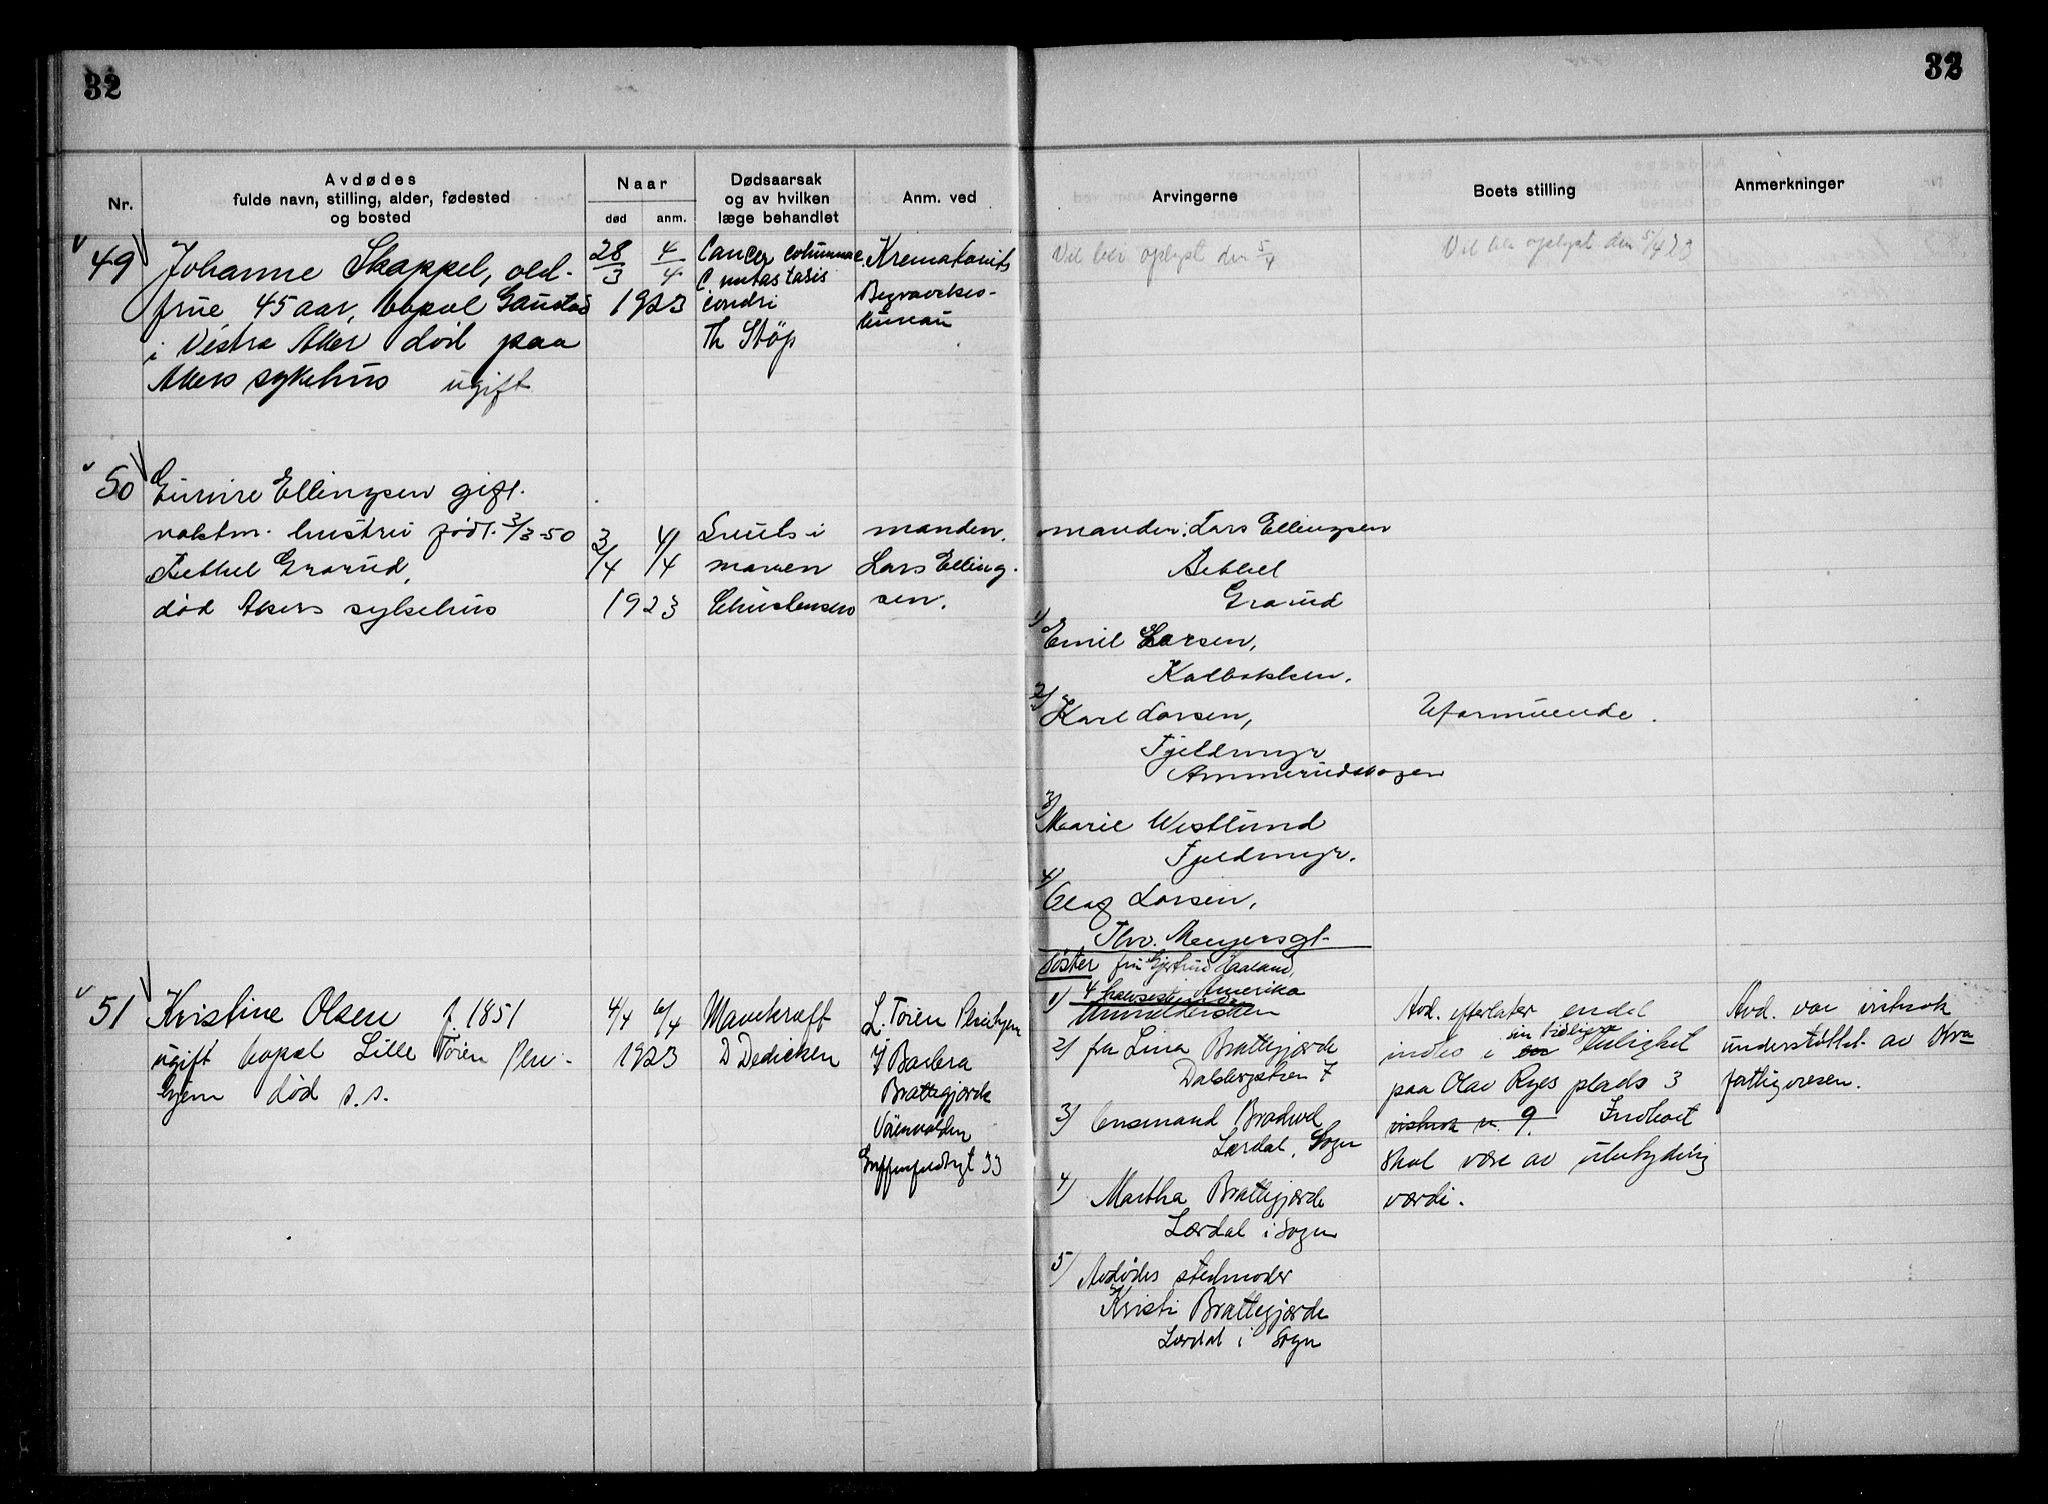 32
32
Nr.
Avdødes
fulde navn, stilling, alder, fødested
og bosted
Naar
død
anm.
Dødsaarsak
og av hvilken
læge behandlet
Anm. ved
Arvingerne
Boets stilling
Anmerkninger
49
Johanne Skappel, old-
frue 45 aar, bopæl Gaustad
i Vestre Aker død paa
Akers sykehus ugift
28/3 4/4
1923
Cancer columnae
c. metastasis
Th Støp
Krematoriets
Begravelses-
bureau
Vil bli oplyst den 5/4
Vil bli oplyst den 5/4 23
50
Ellingsen gift.
vaktm. hustru født. 3/3-50
Bethel Grorud,
død Akers sykehus
3/4 4/4
1923
i
maven
Christensen
manden.
Lars Elling-
sen.
manden: Lars Ellingsen
Bethel
Grorud
1) Emil Larsen,
Kalbakken.
2) Karl Larsen,
Fjeldmyr
Ammerudskogen
Uformuende.
3) Marie Westlund
Fjeldmyr.
4) Olaf Larsen,
Thv. Meyersgt.
51
Kristine Olsen f. 1851
ugift bopæl Lille Tøien Pleie-
hjem død s.s.
4/4 6/4
1923
Mavekræft
D Dedichen
L. Tøien Pleiehjem
v/ Barbra
Brattegjerde
Griffenfeldtsgt 33
Søster fru Gjertrud Haaland,
1) Amerika
2) fru Lina Brattegjerde
Dalsbergstien 7
3) Brattegj
Lærdal, Sogn
4) Martha Brattegjerde
Lærdal i Sogn
5) Avdødes stedmoder
Kristi Brattegjerde
Lærdal i Sogn
Avd. efterlater endel
indbo i sin tidligere leilighet
paa Olav Ryes plads 3
9. Indboet
skal være av ubetydelig
værdi.
Avd. var
understøttet av Kra
fattigvæsen.